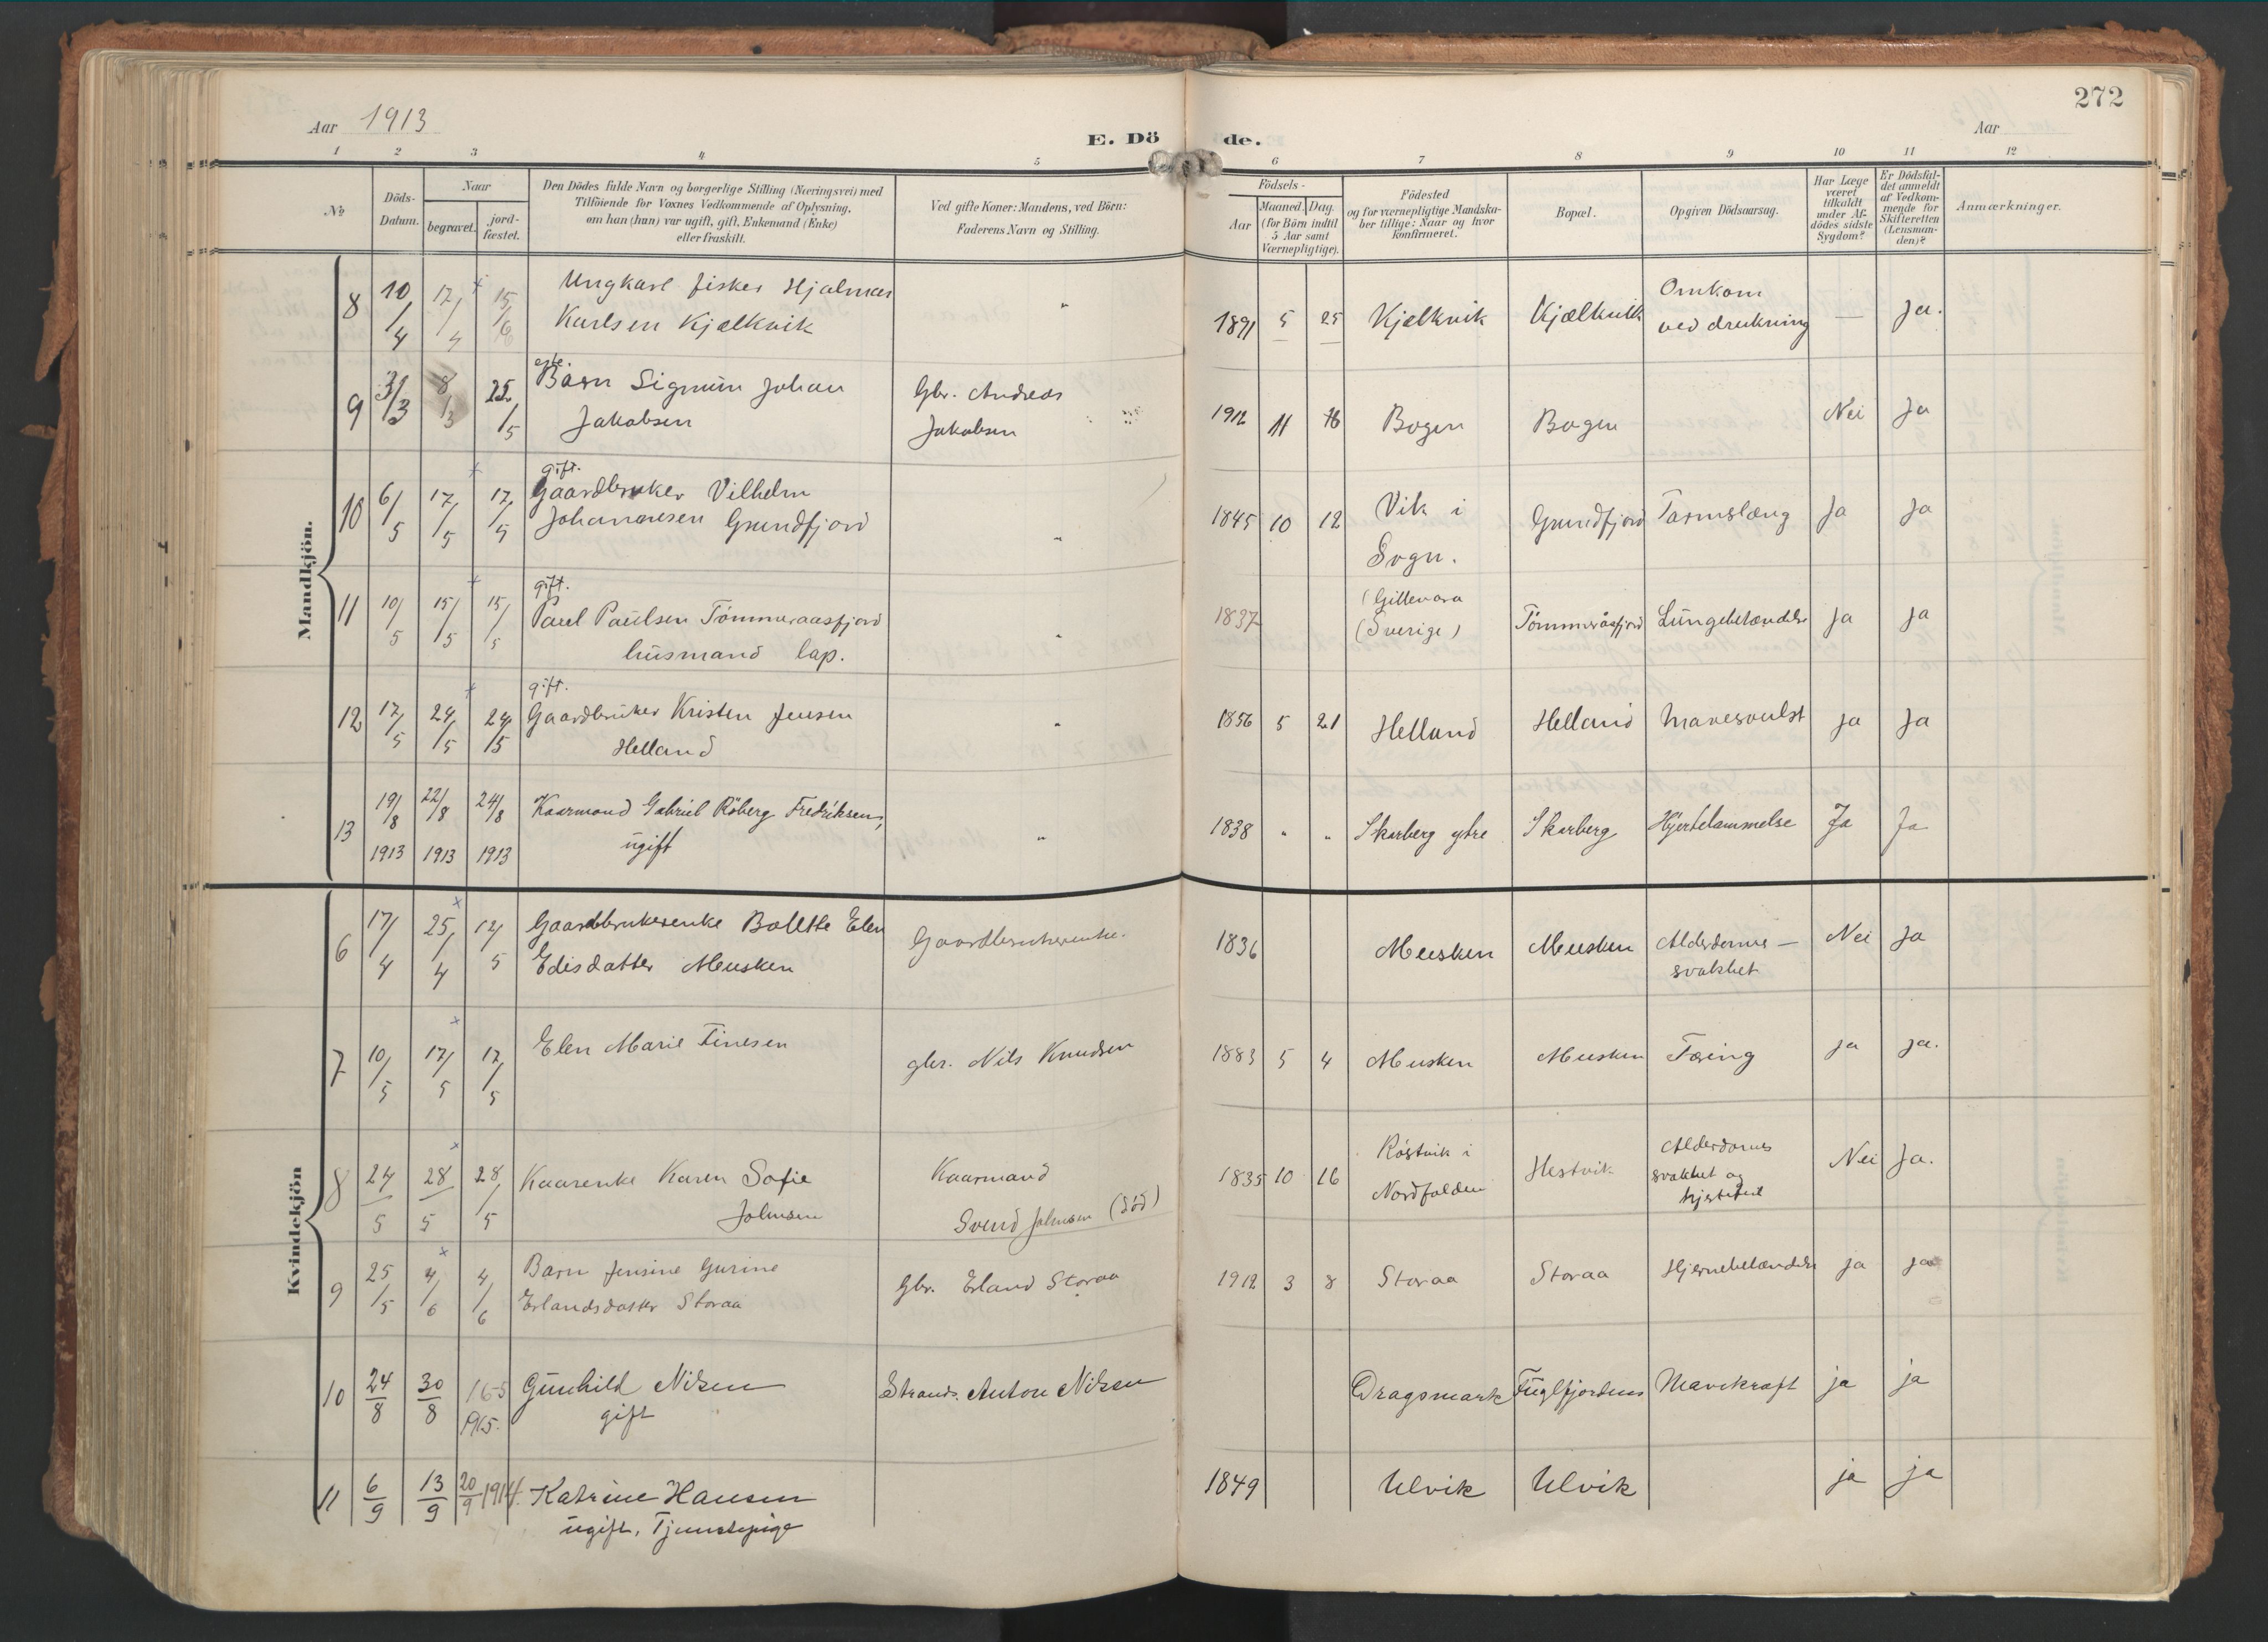 272
Aar 1913
E. Dö de.
Aar
1 2 3 4 5 6 7 8 9 10 11 12
No
Döds-Datum.
Naar
begravet.
jord-fæstet.
Den Dödes fulde Navn og borgerlige Stilling (Næringsvei) med
Tilföiende for Voxnes Vedkommende af Oplysning,
om han (hun) var ugift, gift, Enkemand (Enke)
eller fraskilt.
Ved gifte Koner: Mandens, ved Börn:
Faderens Navn og Stilling.
Födsels-
Aar
Maaned. Dag.
(for Börn indtil
5 Aar samt
Værnepligtige).
Födested
og for værnepligtige Mandska-
ber tillige: Naar og hvor
konfirmeret.
Bopæl.
Opgiven Dödsaarsag.
Har Læge
været
tilkaldt
under Af-
dödes sidste
Sygdom?
Er Dödsfal-
det anmeldt
af Vedkom-
mende for
Skifteretten
(Lensman-
den)?
Anmærkninger.
Mandkjön.
8 10/4 17/4 15/6 Ungkarl fisker Hjalmar " 1891 5 25 Kjelkvik Kjælkvik Omkom — Ja.
Karlsen Kjelkvik ved drukning
9 3/3 8/3 25/5 Barn Sigmun Johan Gbr. Andreas 1912 11 16 Bogen Bogen Nei Ja
Jakobsen Jakobsen
gift.
10 6/5 17/5 17/5 Gaardbruker Vilhelm " 1845 10 12 Vik i Grundfjord Tarmslæng Ja Ja
Johannesen Grundfjord Sogn.
gift.
11 10/5 15/5 15/5 Paul Paulsen Tömmeraasfjord " 1837 (Gillevara Tömmeråsfjord Lungebetændelse Ja Ja
husmand lap. (Sverige)
gift.
12 17/5 24/5 24/5 Gaardbruker Kristen Jensen " 1856 5 21 Helland Helland Mavesvulst Ja Ja
Helland
13 19/8 22/8 24/8 Kaarmand Gabriel Röberg Fredriksen, " 1838 " " Skarberg ytre Skarberg Hjertelammelse Ja Ja
1913 1913 1913 ugift
Kvindekjön
6 17/4 25/4 12/5 Gaardbrukerenke Bolette Elen Gaardbrukerenke. 1836 Musken Musken Alderdoms— Nei Ja
Edisdatter Musken svakhet
7 10/5 17/5 17/5 Elen Marie Finesen gbr. Nils Knudsen 1883 5 4 Musken Musken Tæring ja ja.
8 24/5 28/5 28/5 Kaarenke Karen Sofie Kaarmand 1835 10 16 Röstvik i Hestvik Alderdoms Nei Ja.
Johnsen Svend Johnsen (död) Nordfolden svakhet og
hjertefeil
9 25/5 4/6 4/6 Barn Jensine Gurine Gbr. Erland Storaa 1912 3 8 Storaa Storaa Hjernebetændelse ja ja
Erlandsdatter Storaa
10 24/8 30/8 16-5 Gunhild Nilsen Strands. Anton Nilsen Dragsmark Fuglfjorden Mavekræft ja ja
1915. gift
11 6/9 13/9 20/9 1914. Katrine Hansen 1849 Ulvik Ulvik ja ja
ugift, Tjenestepige